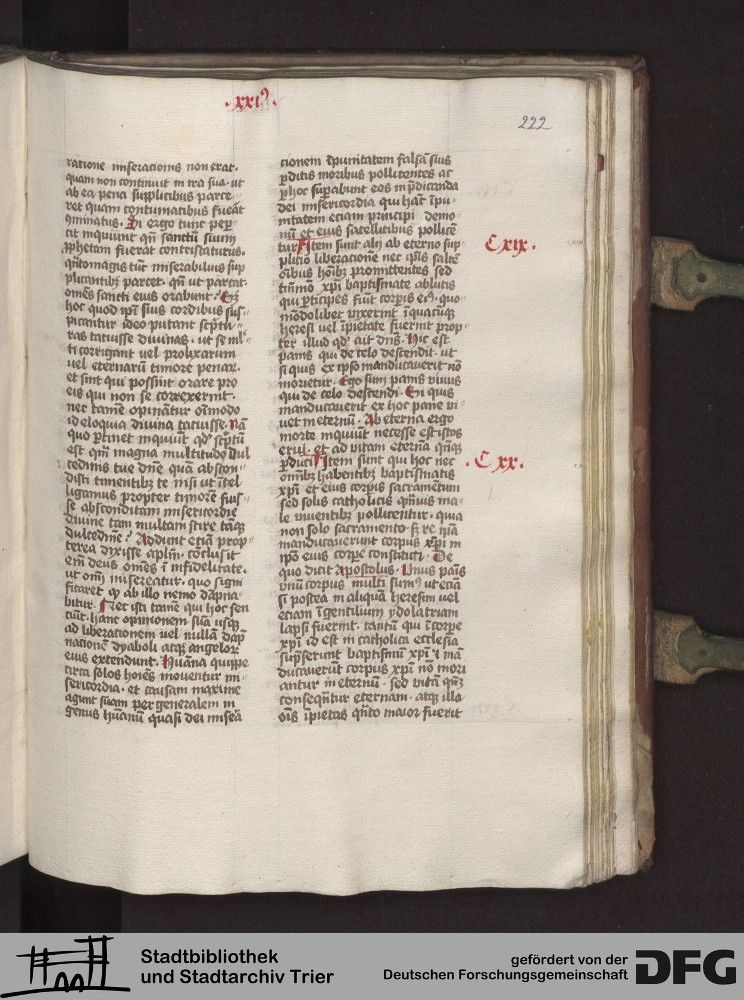 ·xxi⁹·
222
ratione miseracionis non erat·
quam non continuit in ira sua· ut
ab ea pena supplicibus parce
ret quam contumatibus fuerat
9minatus· Si ergo tunc peper
cit inquiunt qn̄ sanctū suum
ꝓphetam fuerat contristaturus·
qūtomagis tūc miserabilius sup
plicantibꝫ parcet· qn̄ ut parcat
omēs sancti eius orabunt· Eꝫ
hoc quod ipi̅ suis cordibus sus-
picantur ideo putant scpt̄u
ras tacuisse diuinas· ut se ml̄
ti corrigant uel prolixarum
uel eternarū timore penaꝝ·
et sint qui possint orare pro
eis qui non se correxerint·
nec tamē opinātur oīmodo
id eloquia diuina tacuisse· Nā
quo ꝑtinet inquiūt qd̓ scptū
est qm̄ magna multitudo dul
cedinis tue dn̄e quā abscon-
disti timentibꝫ te nisi ut ītel
ligamus propter timorē fuis-
se absconditam misericordie
diuine tam multam
dulcedinē· Addunt eciā prop-
terea dixisse aplm̄· cōclusit
em̄ deus omēs ī infidelitate·
ut om̄i misereatur· quo signi
ficaret ꝙ ab illo nemo dāpna-
bitur· Nec isti tamē qui hoc sen
ciūt· hanc opinionem suā usqꝫ
ad liberacionem uel nullā dāp
nacionē dyaboli atqꝫ angeloꝝ
eius extendunt· Huāna quippe
circa solos hoīes mouentur mi-
sericordia· et causam maxime
agunt suam per generalem in
genus hūanū quasi dei misēa
cionem īpunitatem falsā suis
ꝑditis moribus pollicentes ac
ꝑhoc suꝑabunt eos in p̄dicanda
dei misericordia qui hāc īpu-
nitatem eciam principi demo-
nū et eius satellitibus pollicē
tur Item sunt alij ab eterno sup-
plitio liberacione nec ip̄is saltē
oībus hoībꝫ promittentes sed
tm̄mo xp̄i baptismate ablutis
qui ꝑticipes fiūt corꝑis ei⁹· quo-
mōdolibet uixerint ī quacūqꝫ
heresi uel īpietate fuerint prop-
ter illud qd̓ ait dn̄s· Hic est
panis qui de celo descendit· ut
si quis ex ipso manducauerit nō
morietur· Ego sum panis uiuus
qui de celo descendi· Si quis
manducauerit ex hoc pane vi-
uet in eternū· Ab eterna ergo
morte inquiūt necesse est istos
erui· et ad uitam eternā qn̄qꝫ
ꝑduci Item sunt qui hoc nec
om̄ibꝫ habentibꝫ baptismatis
xp̄i et eius corꝑis sacramētum
sed solis catholicis qm̄uis ma-
le uiuentibꝫ pollicentur· quia
non solo sacramento sꝫ re ip̄a
manducauerunt corpus xp̄i in
ip̄o eius corpe constituti· De
quo dicit Apostolus· Unus panis
unū corpus multi sum⁹ ut eciā
si postea in aliquā heresim uel
etiam ī gentilium ydolatriam
lapsi fuerint· tantū qui ī corpe
xp̄i id est in catholica ecclesia
sup̄serunt baptismū xp̄i ⁊ mā
ducauerūt corpus xp̄i nō mori
antur in eternū· sed uitā qn̄ꝫ
consequātur eternam· atqꝫ illa
oīs īpietas qūto maior fuerit
C xix·
· C xx·
Stadtbibliothek
und Stadtarchiv Trier
gefördert von der
Deutschen Forschungsgemeinschaft
DFG